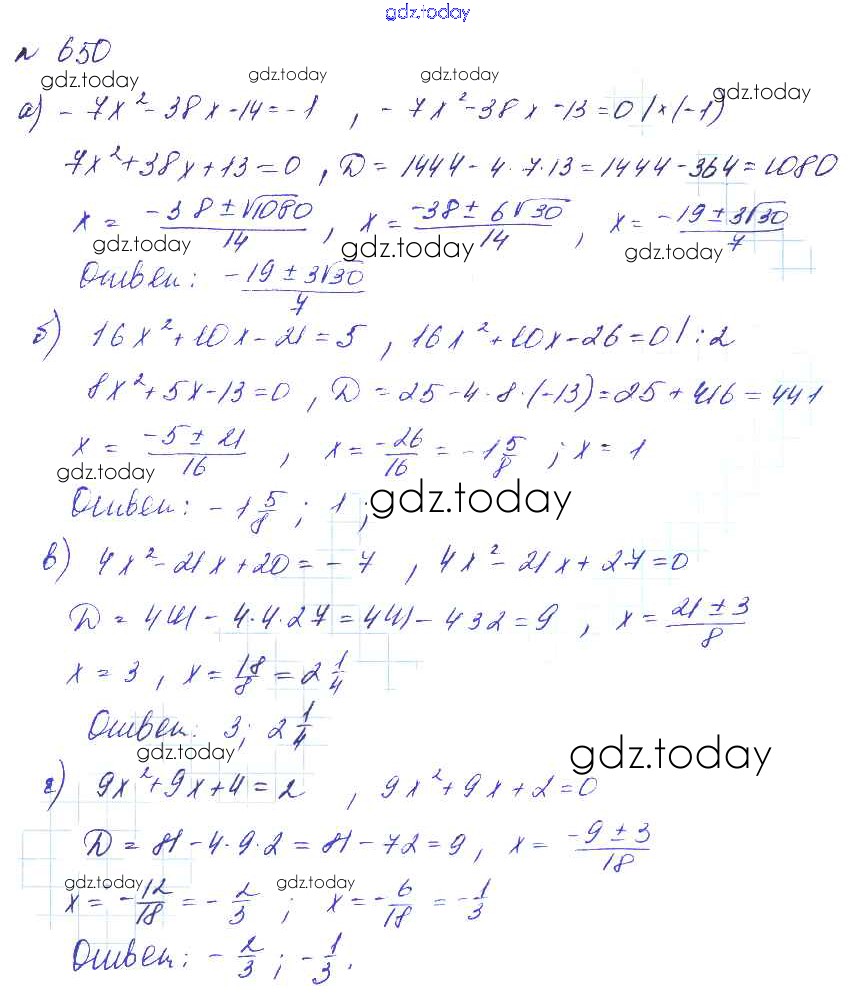 gdz.today
№ 650
gdz.today gdz.today gdz.today gdz.today
а) -7x²-38x-14=-1 , -7x²-38x-13=0 |×(-1)
7x²+38x+13=0 , D=1444-4·7·13=1444-364=1080
x = (-38±√1080)/14 , x = (-38±6√30)/14 , x = (-19±3√30)/7
gdz.today gdz.today gdz.today
Ответ: (-19±3√30)/7
б) 16x²+10x-21=5 , 16x²+10x-26=0 |:2
8x²+5x-13=0 , D=25-4·8·(-13)=25+416=441
x = (-5±21)/16 , x = -26/16 = -1 5/8 ; x = 1
gdz.today
Ответ: -1 5/8 ; 1 ;
gdz.today
в) 4x²-21x+20=-7 , 4x²-21x+27=0
D = 441-4·4·27=441-432=9 , x = (21±3)/8
x = 3 , x = 18/8 = 2 1/4
Ответ: 3; 2 1/4
gdz.today
г) 9x²+9x+4=2 , 9x²+9x+2=0
D = 81-4·9·2=81-72=9 , x = (-9±3)/18
gdz.today gdz.today
x = -12/18 = -2/3 ; x = -6/18 = -1/3
Ответ: -2/3 ; -1/3.
gdz.today